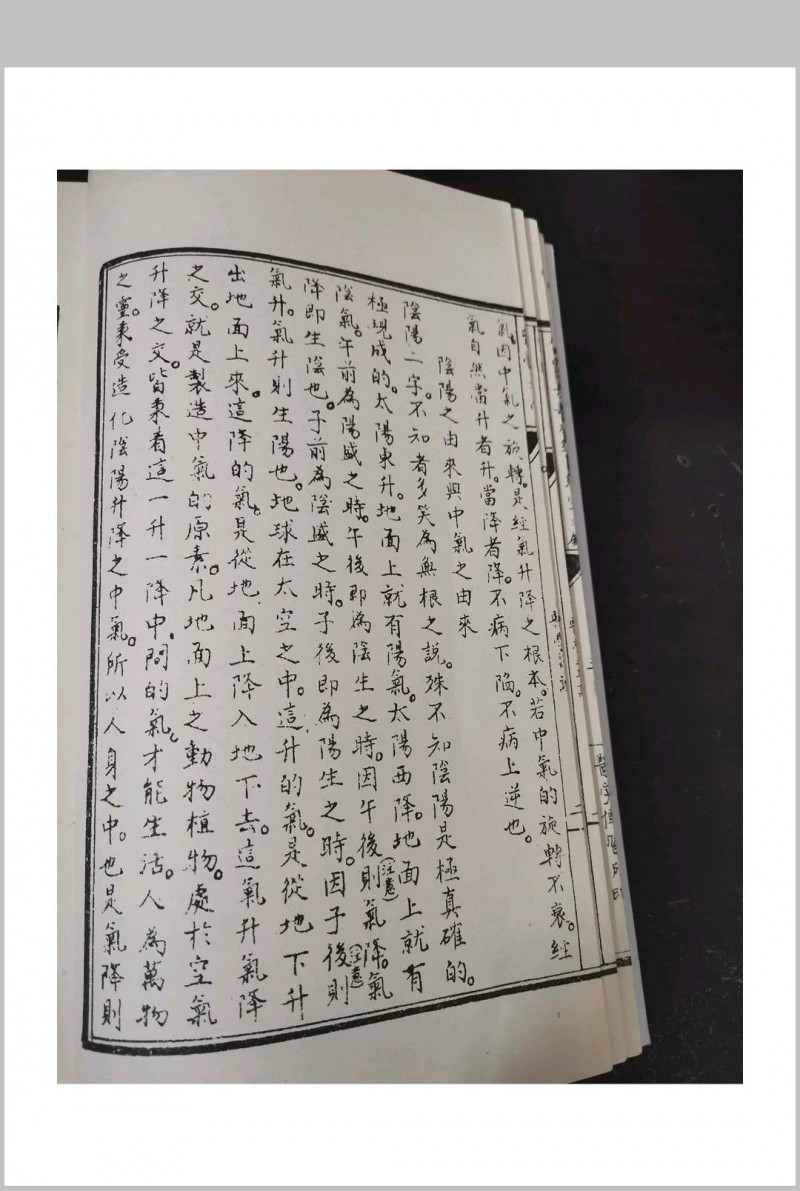 氣。因中氣之旋轉。是經氣升降之根本。若中氣的旋轉不衰。經
氣自然當升者升。當降者降。不病下陷。不病上逆也。
陰陽之由來與中氣之由來
陰陽二字。不知者多笑為無根之說。殊不知陰陽是極真確的。
極現成的。太陽東升。地面上就有陽氣。太陽西降。地面上就有
陰氣。午前為陽盛之時。午後即為陰生之時。因午後則(注意)氣降。氣
降即生陰也。子前為陰盛之時。子後即為陽生之時。因子後則(注意)
氣升。氣升則生陽也。地球在太空之中。這升的氣。是從地下升
出地面上來。這降的氣。是從地面上降入地下去。這氣升氣降
之交。就是製造中氣的原素。凡地面上之動物植物。處於空氣
升降之交。皆秉着這一升一降中間的氣。才能生活。人為萬物
之靈。秉受造化陰陽升降之中氣。所以人身之中。也是氣降則